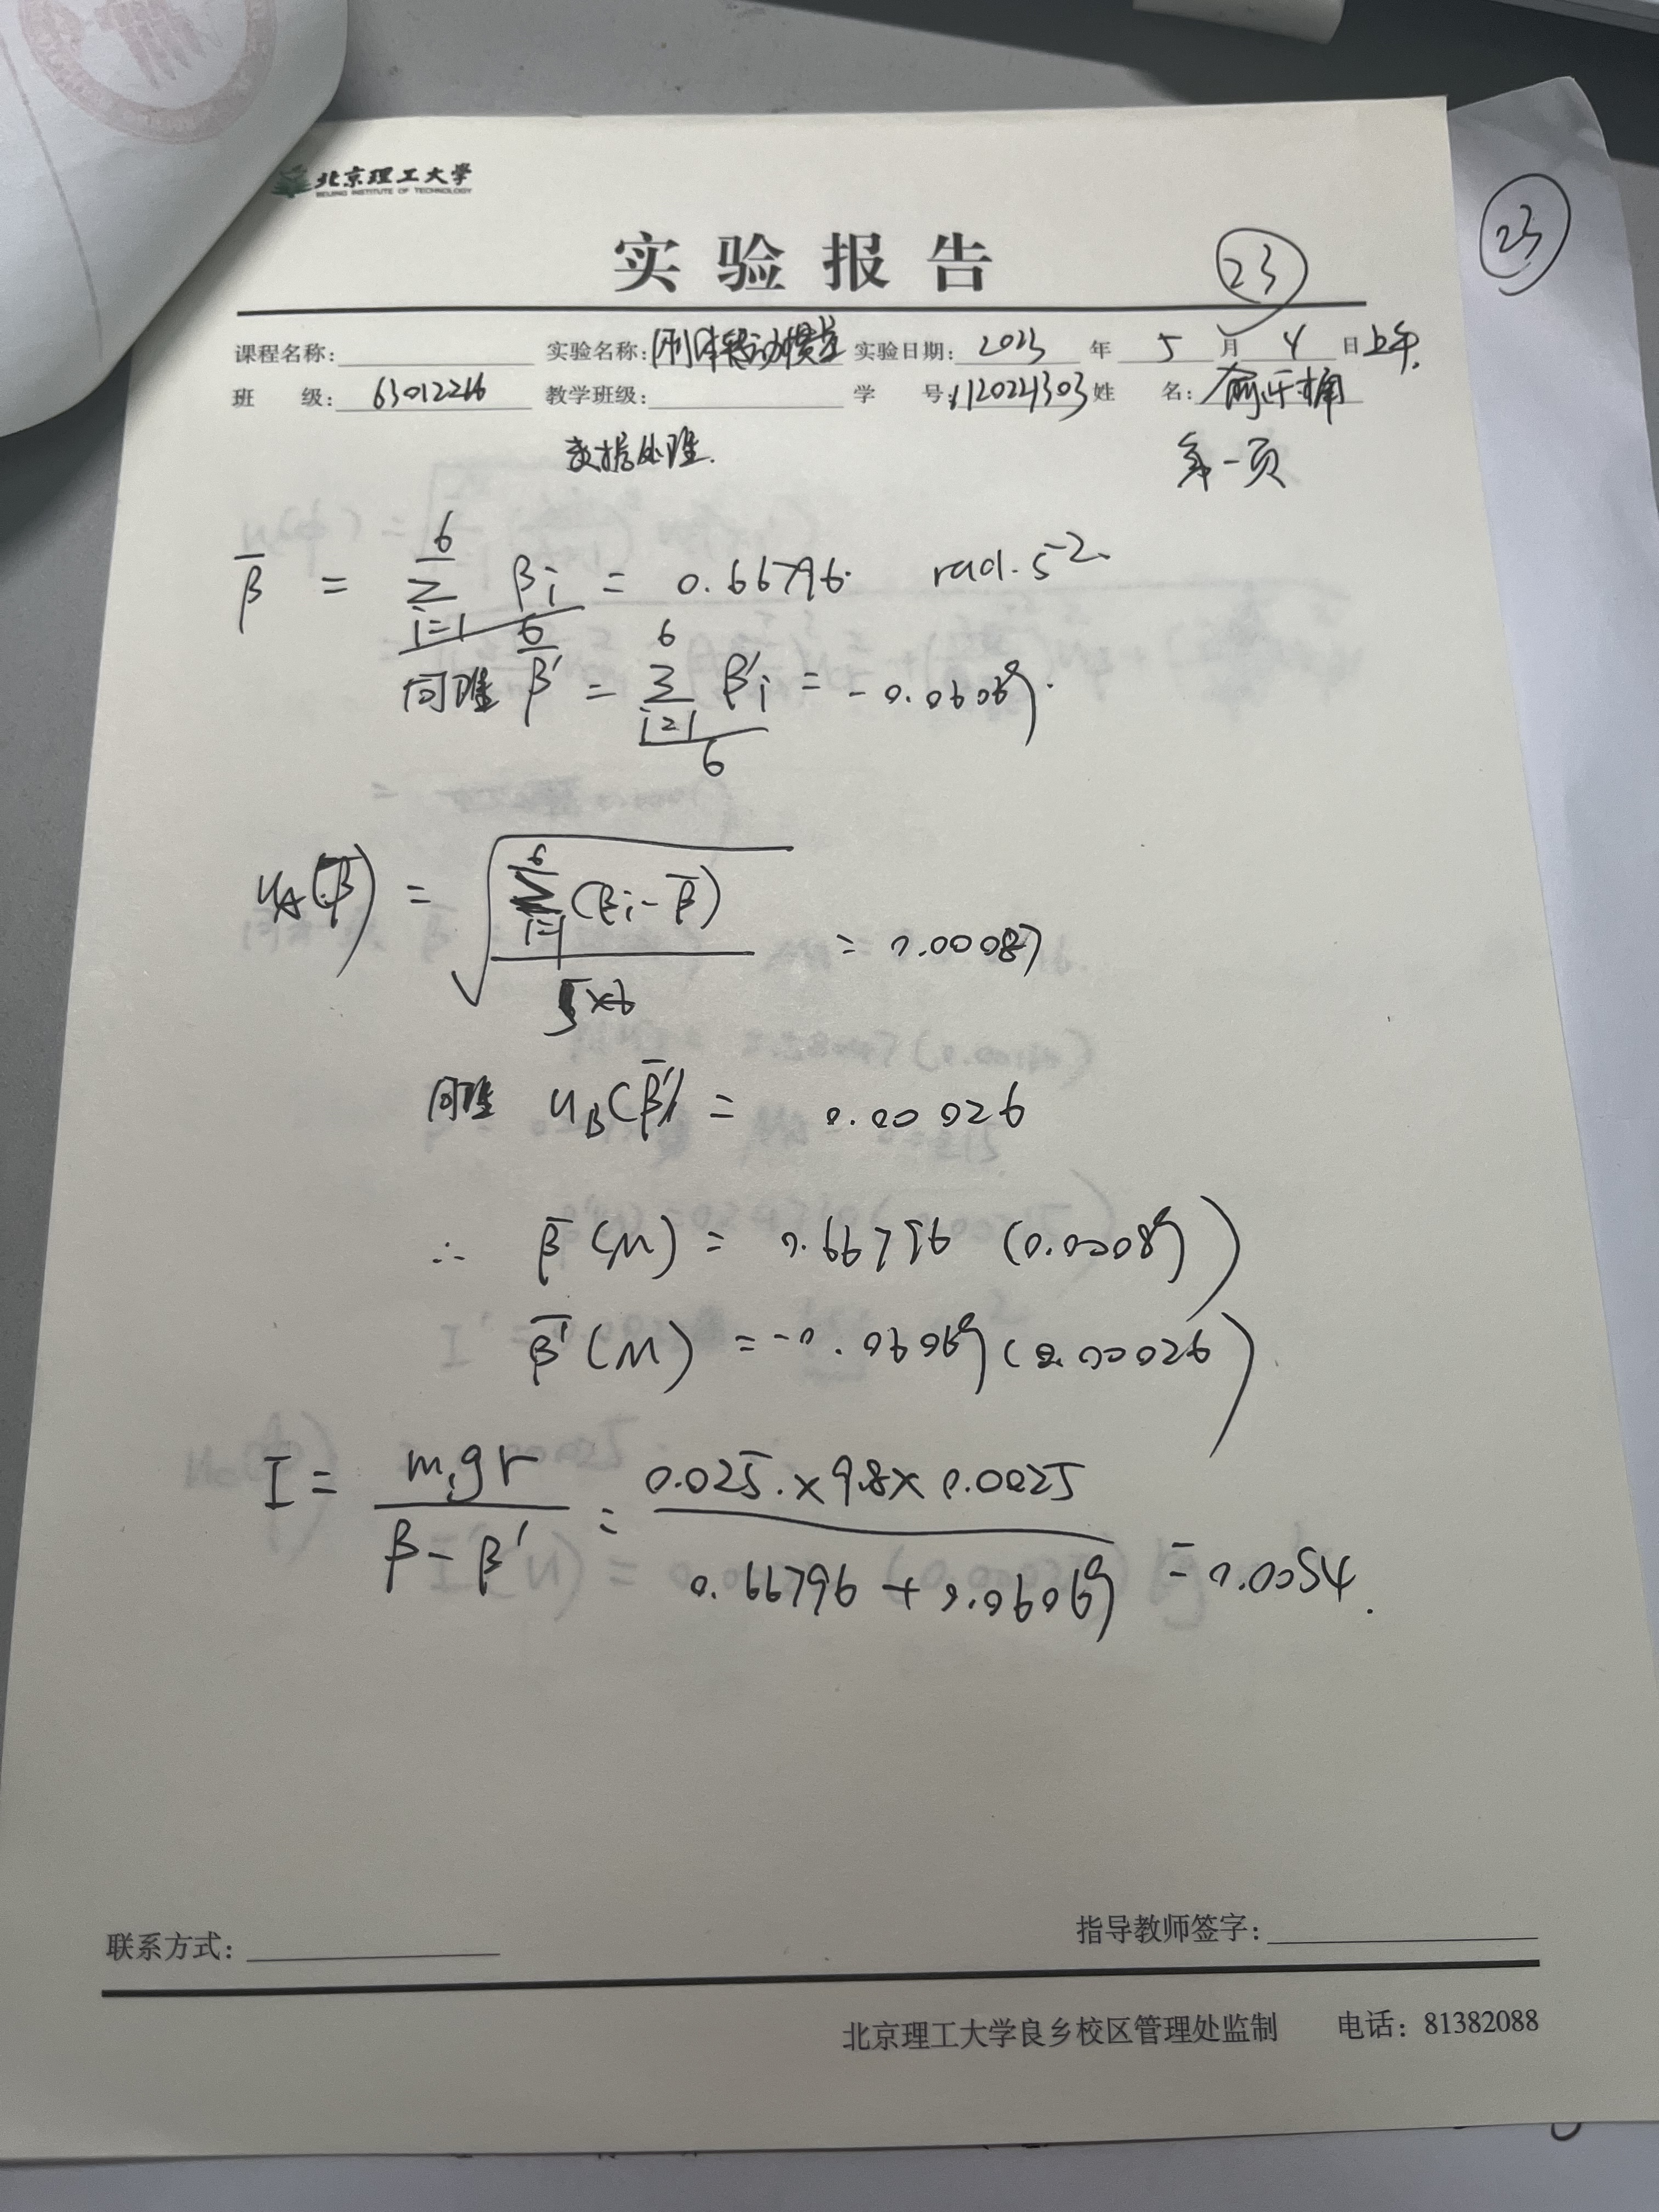 北京理工大学
BEIJING INSTITUTE OF TECHNOLOGY
实验报告
23
23
课程名称: 实验名称: 刚体转动惯量 实验日期: 2023 年 5 月 4 日 上午.
班 级: 63012216 教学班级: 学 号: 1120221303 姓 名:
数据处理.
第一页
β̄ = Σ(i=1→6) βi / 6 = 0.66796. rad·s⁻².
同理 β̄' = Σ(i=1→6) β'i / 6 = -0.06069.
uA(β̄) = √(Σ(i=1→6) (βi - β̄) / 5×6) = 0.00087
同理 uB(β̄') = 0.00026
∴ β̄(M) = 0.66796 (0.00089)
β̄'(M) = -0.06069 (0.00026)
I = m₁gr / β - β' = 0.025.×9.8×0.0025 / 0.66796 + 0.06069 = 0.0054.
联系方式: 指导教师签字:
北京理工大学良乡校区管理处监制 电话: 81382088